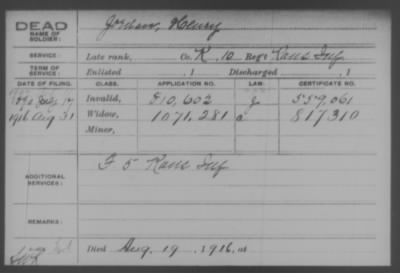 DEAD
NAME OF SOLDIER: Jordan, Henry
SERVICE: Late rank, Co. K, 10 Reg't Kans Inf.
TERM OF SERVICE: Enlisted , 1 Discharged , 1
DATE OF FILING. CLASS. APPLICATION NO. LAW. CERTIFICATE NO.
1890 July 17 Invalid, 810,602 J 559,061
1916 Aug 31 Widow, 1071,281 a 817,310
Minor,
ADDITIONAL SERVICES: F 5 Kans Inf
REMARKS:
Died Aug. 19, 1916, at